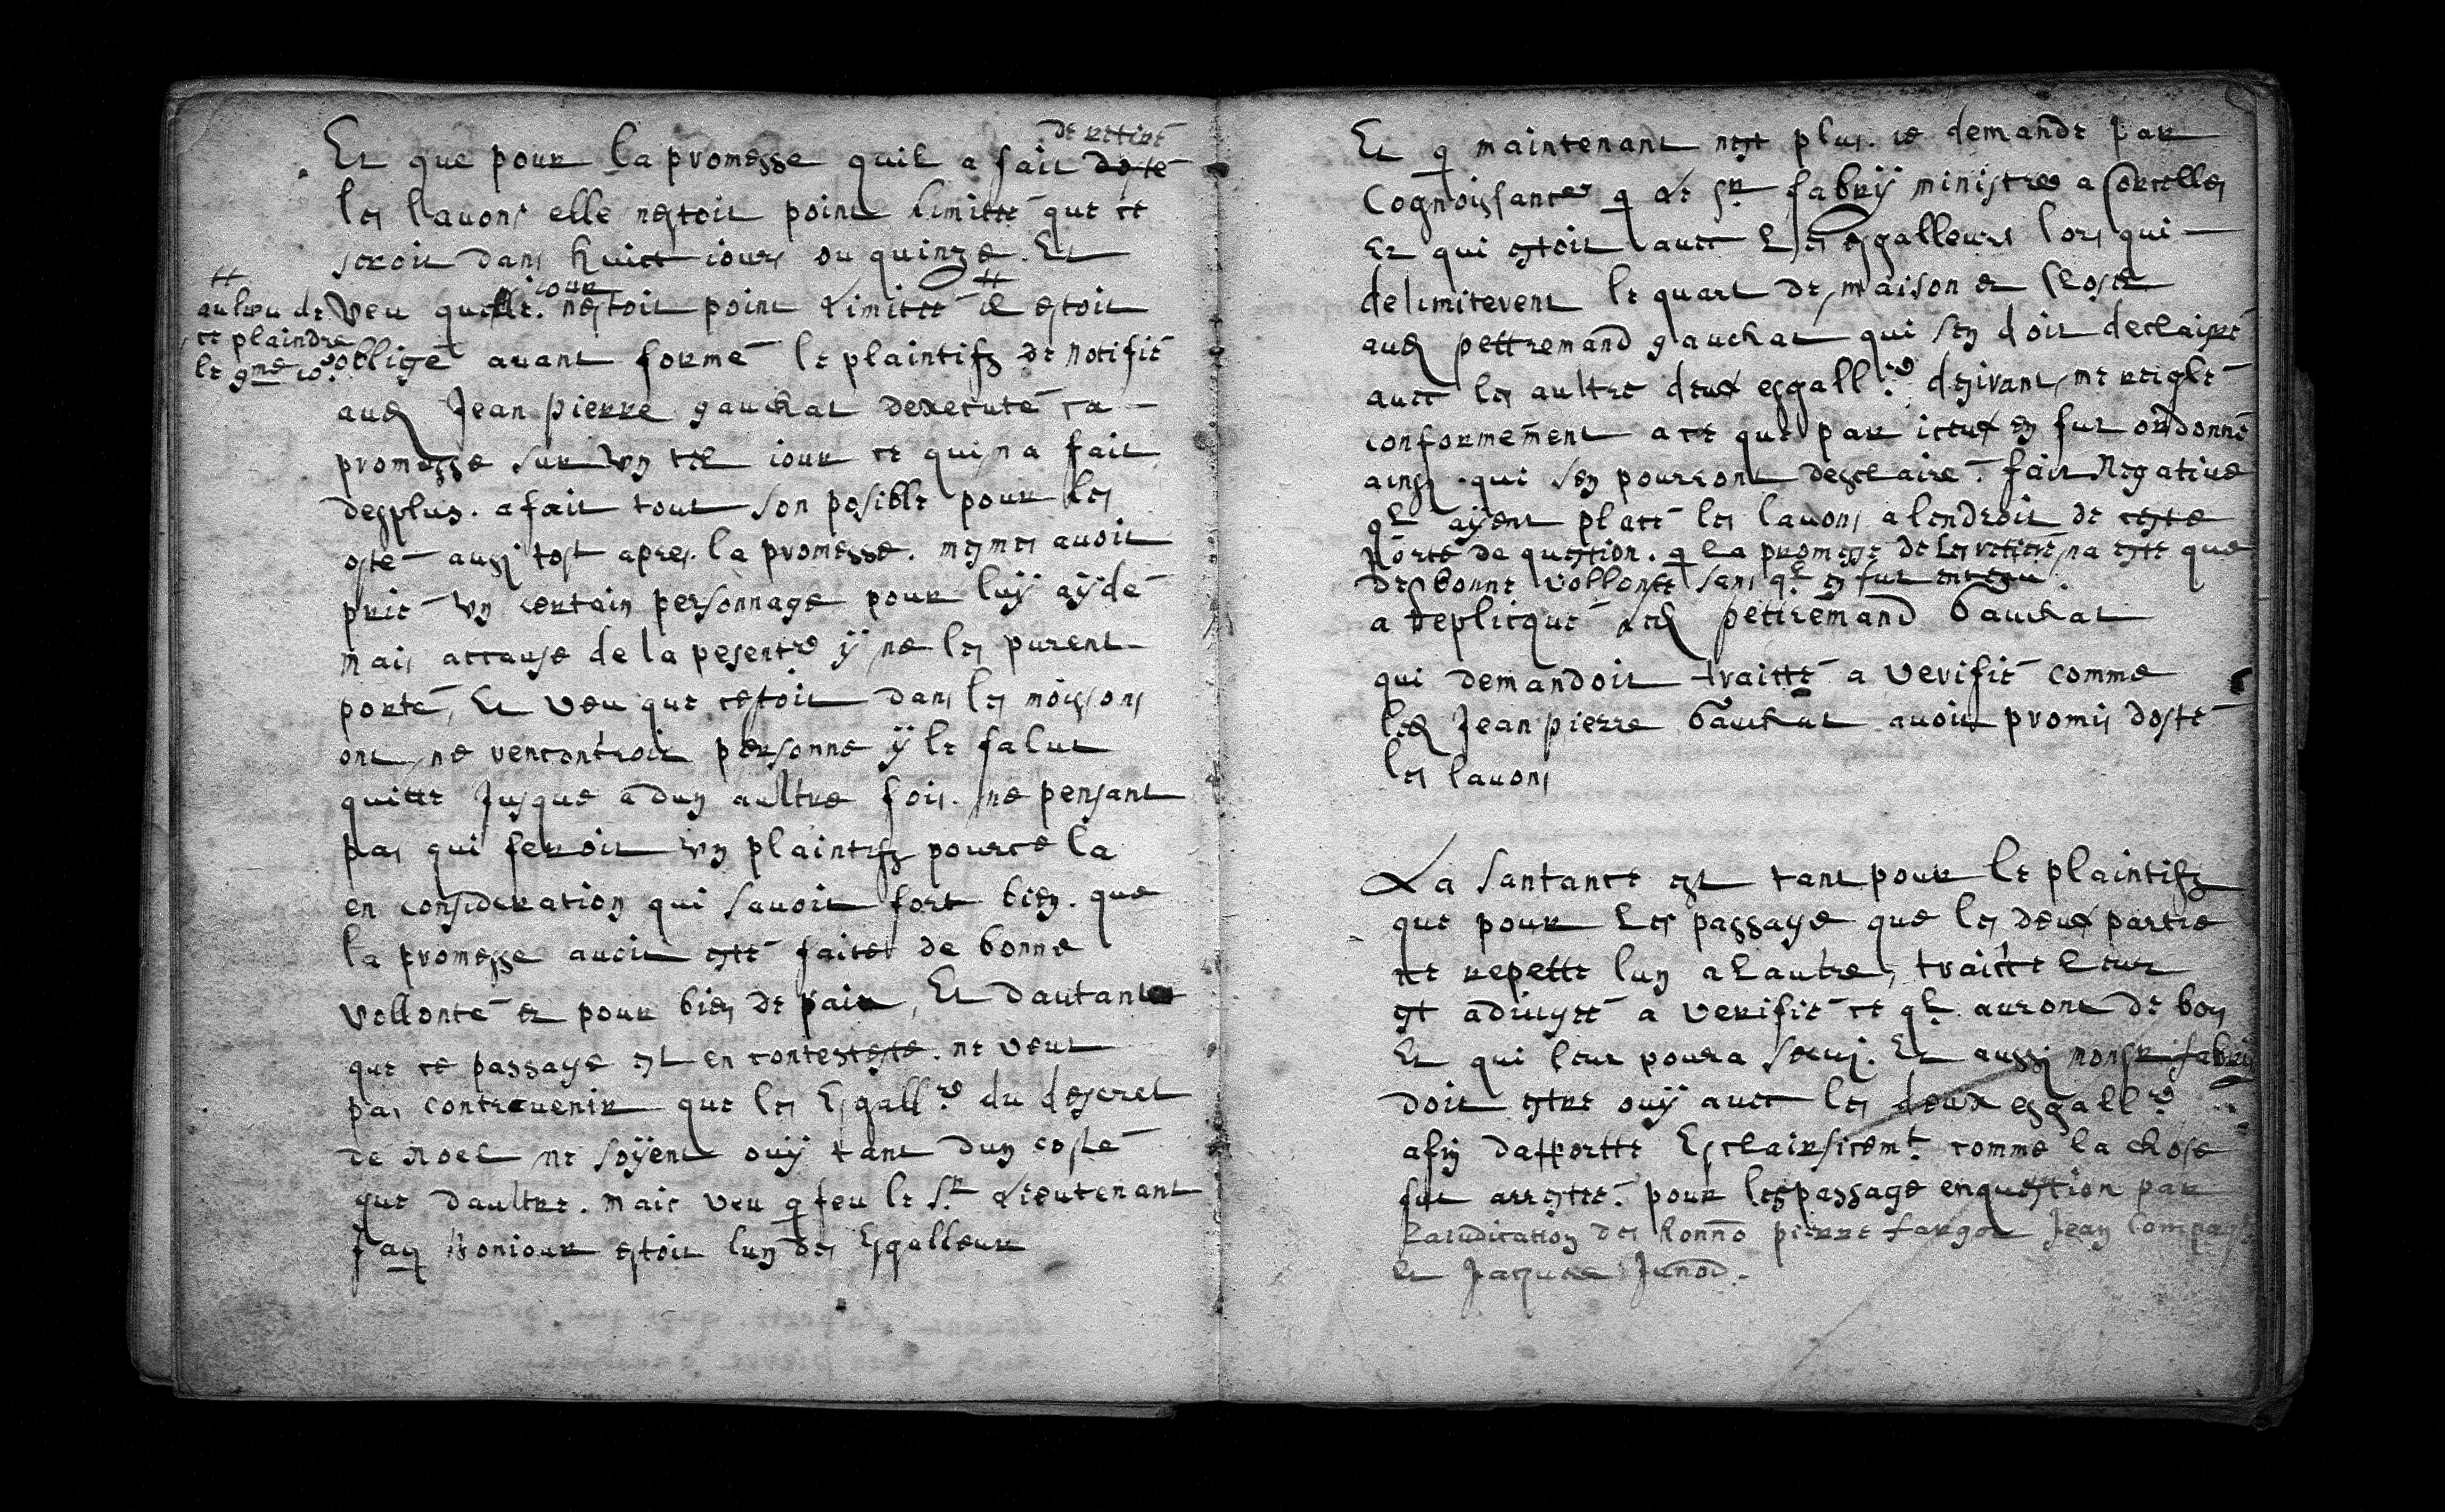 de retiré
Et que pour la promesse quil a fait dosté
les lauons elle nestoit point limitté que ce
seroit dans huict iours ou quinze. Et
veu que le iour nestoit point limitté il estoit
au lieu de
ce plaindre
le gme io.
obligé auant formé le plaintifz de notifié
aud Jean pierre gauchat dexecuté ca
promesse sur vn tel iour ce qui na fait
desplus. a fait tout son posible pour les
osté aussi tost apres. la promesse. mesmes auoit
prié vn certain personnage pour luÿ aÿdé
mais accause de la pesente ÿ ne les purent
porté, Et veu que cestoit dans les moissons
ont ne rencontroit personne ÿ le falut
quitte Jusque a dun aultre fois. ne pensant
pas qui feroit vn plaintifz pource la
en consideration qui sauoit fort bien. que
la promesse auoit esté faite de bonne
vollonté et pour bien de paix, Et dautant
que ce passage est en conteste. ne veut
pas contreuenir que les Esgallrs du deseret
de Noel ne soÿent ouÿ tant dun costé
que daultre. mais veu q feu le Sr Lieutenant
Jaq Boniour estoit lun des Esgalleur
Et q maintenant nest plus. ie demande par
Cognoissance q le sr fabrÿ ministre a Cortelles
Et qui estoit auec les esgalleurs lors qui
delimiterent le quart de maison et Closel
aud pettremand gauchat qui sen doit declairé
auec les aultre deux esgallrs desirant me reiglé
conformement a ce que par iceux en fut ordonné
ainsy. qui sen pourront desclairé. fait Negatiue
ql aÿent placé les lauons a lendroit de ceste
porte de question. q la promesse de les retiré na esté que
de bonne vollonté sans ql en fut
a repliqué led petiremand Gauchat
qui demandoit traitté a verifié comme
led Jean pierre Gauchat auoit promis dosté
les lauons
La Santance est tant pour le plaintifz
que pour les passage que les deux partie
ce repette lun a lautre, traitte leur
est adiugée a verifié ce ql auront de bon
Et qui leur poura serui. Et aussi monsr fabri
doit estre ouÿ auec les deux esgallrs
afin dapportte Esclairsicemt comme la chose
fut arrestée. pour les passage en question par
Laiudication des honno pierre fargot Jean Compag
et Jaques Junod.